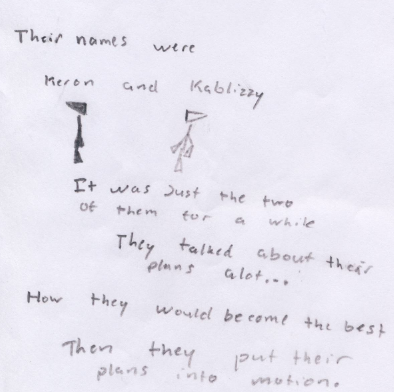 Their names were
Keron and Kablizzy
It was Just the two
of them for a while
They talked about their
plans alot...
How they would become the best
Then they put their
plans into motion.